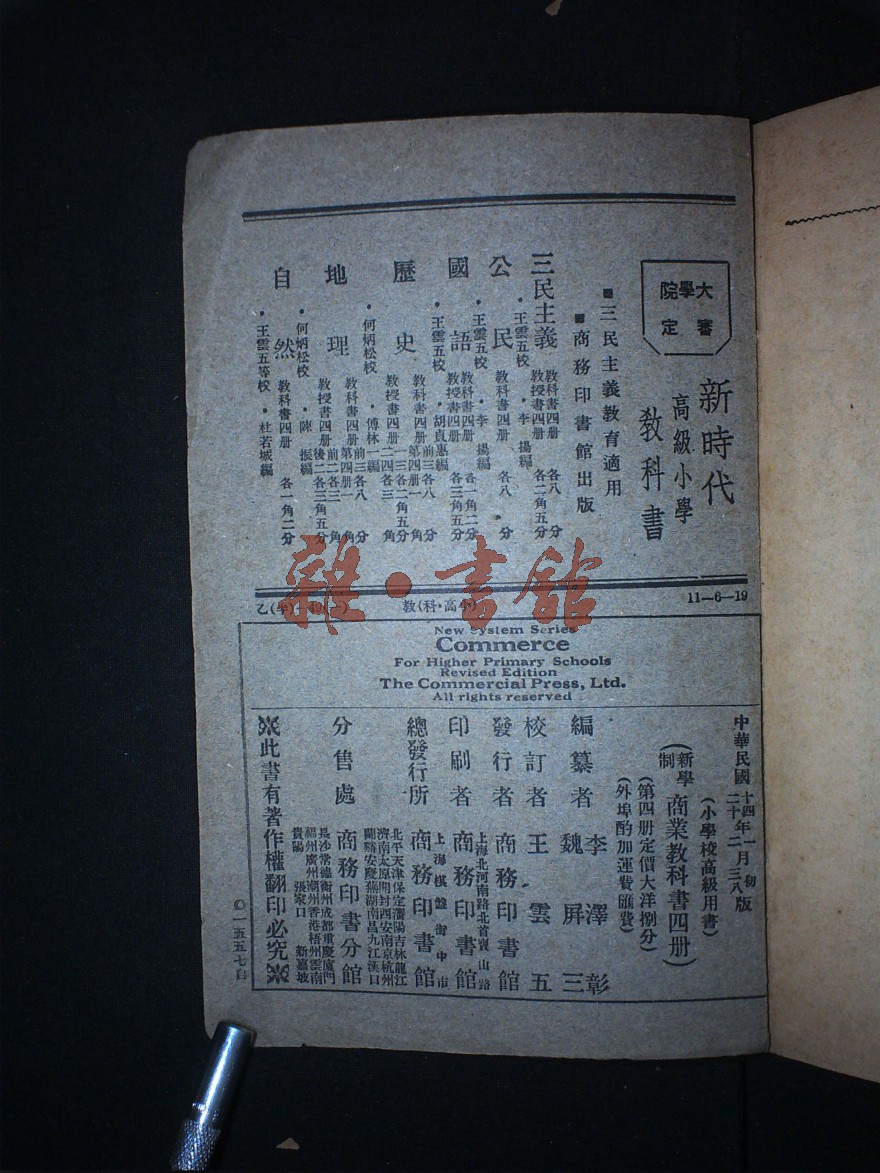 大學院
審定
新時代
高級小學
教科書
■三民主義教育適用
■商務印書館出版
三民主義
教科書四册 各八分
教授書四册 各二角五分
•王雲五校 •李揚編
公民
教科書四册 各八分
•王雲五校 •李揚編
國語
教科書四册 各一角二分
教授書四册 各三角五分
•王雲五校 •胡貞惠編
歷史
教科書四册
教授書四册
•何炳松校 •傅林一編
地理
教科書四册
教授書四册
•何炳松校 •陳振編
自然
教科書四册 各一角二分
•王雲五等校 •杜若城編
11—6—19
教(科•高小)
雜•書館
New System Series
Commerce
For Higher Primary Schools
Revised Edition
The Commercial Press, Ltd.
All rights reserved
中華民國
十四年一月初版
(小學校高級用書)
(新學制)商業教科書四册)
(第四册定價大洋捌分)
(外埠酌加運費匯費)
編纂者 李澤彰
魏屏三
校訂者 王雲五
發行者 商務印書館
上海北河南路北首寶山路
印刷者 商務印書館
上海棋盤街中市
總發行所 商務印書館
北平天津保定瀋陽吉林龍江
濟南太原開封西安南京杭州
蘭谿安慶蕪湖南昌九江漢口
分售處 商務印書分館
長沙常德衡州成都重慶廈門
福州廣州潮州香港梧州雲南
貴陽 張家口 新嘉坡
※此書有著作權翻印必究※